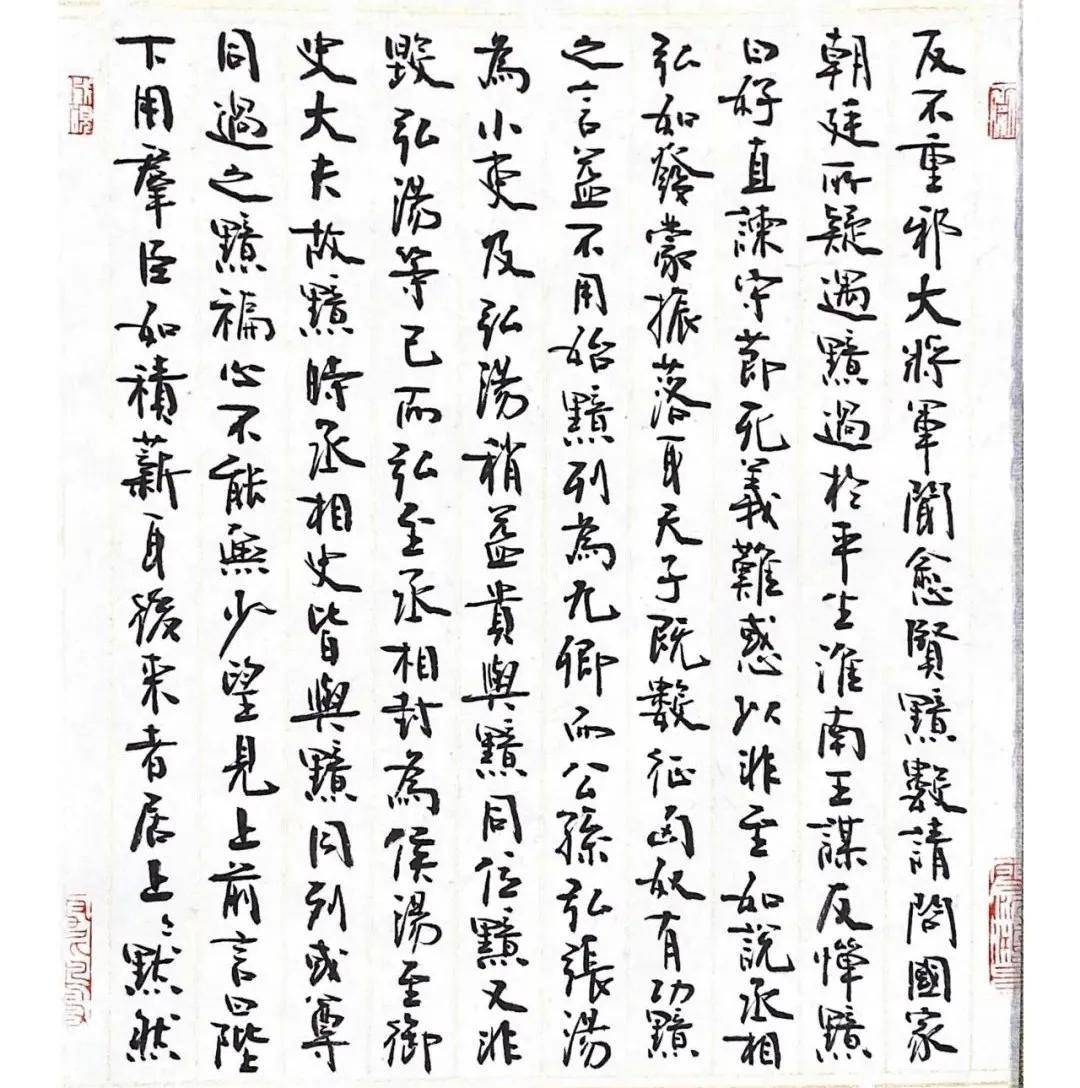 反不重邪大將軍聞愈賢黯數請問國家
朝廷所疑遇黯過於平生淮南王謀反憚黯
曰好直諫守節死義難惑以非至如說丞相
弘如發蒙振落耳天子既數征匈奴有功黯
之言益不用始黯列為九卿而公孫弘張湯
為小吏及弘湯稍益貴與黯同位黯又非
毀弘湯等已而弘至丞相封為侯湯至御
史大夫故黯時丞相史皆與黯同列或尊
同過之黯褊心不能無少望見上前言曰陛
下用羣臣如積薪耳後來者居上〻默然